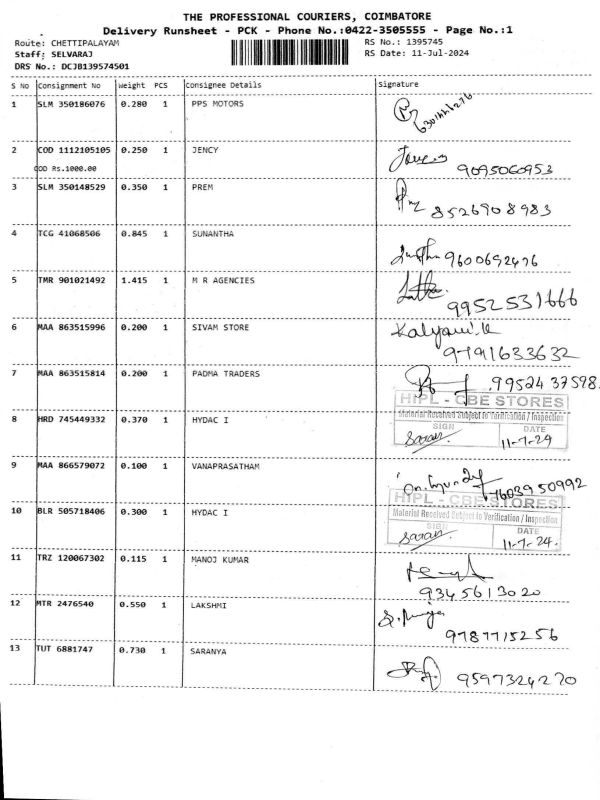 THE PROFESSIONAL COURIERS, COIMBATORE
Delivery Runsheet - PCK - Phone No.:0422-3505555 - Page No.:1
Route: CHETTIPALAYAM RS No.: 1395745
Staff: SELVARAJ RS Date: 11-Jul-2024
DRS No.: DCJB139574501
S No Consignment No Weight PCS Consignee Details Signature
1 SLM 350186076 0.280 1 PPS MOTORS
2 COD 1112105105 0.250 1 JENCY
COD Rs.1000.00 9095060953
3 SLM 350148529 0.350 1 PREM
8526908983
4 TCG 41068506 0.845 1 SUNANTHA
9600692476
5 TMR 901021492 1.415 1 M R AGENCIES
9952531666
6 MAA 863515996 0.200 1 SIVAM STORE Kalyani.K
9791633632
7 MAA 863515814 0.200 1 PADMA TRADERS 9952437598
HIPL - CBE STORES
Material Received Subject to Verification / Inspection
8 HRD 745449332 0.370 1 HYDAC I SIGN DATE
Saran 11-7-24
9 MAA 866579072 0.100 1 VANAPRASATHAM
7603950992
HIPL - CBE STORES
10 BLR 505718406 0.300 1 HYDAC I Material Received Subject to Verification / Inspection
SIGN DATE
Saran 11-7-24.
11 TRZ 120067302 0.115 1 MANOJ KUMAR
9345613020
12 MTR 2476540 0.550 1 LAKSHMI
9787715256
13 TUT 6881747 0.730 1 SARANYA
9597324270